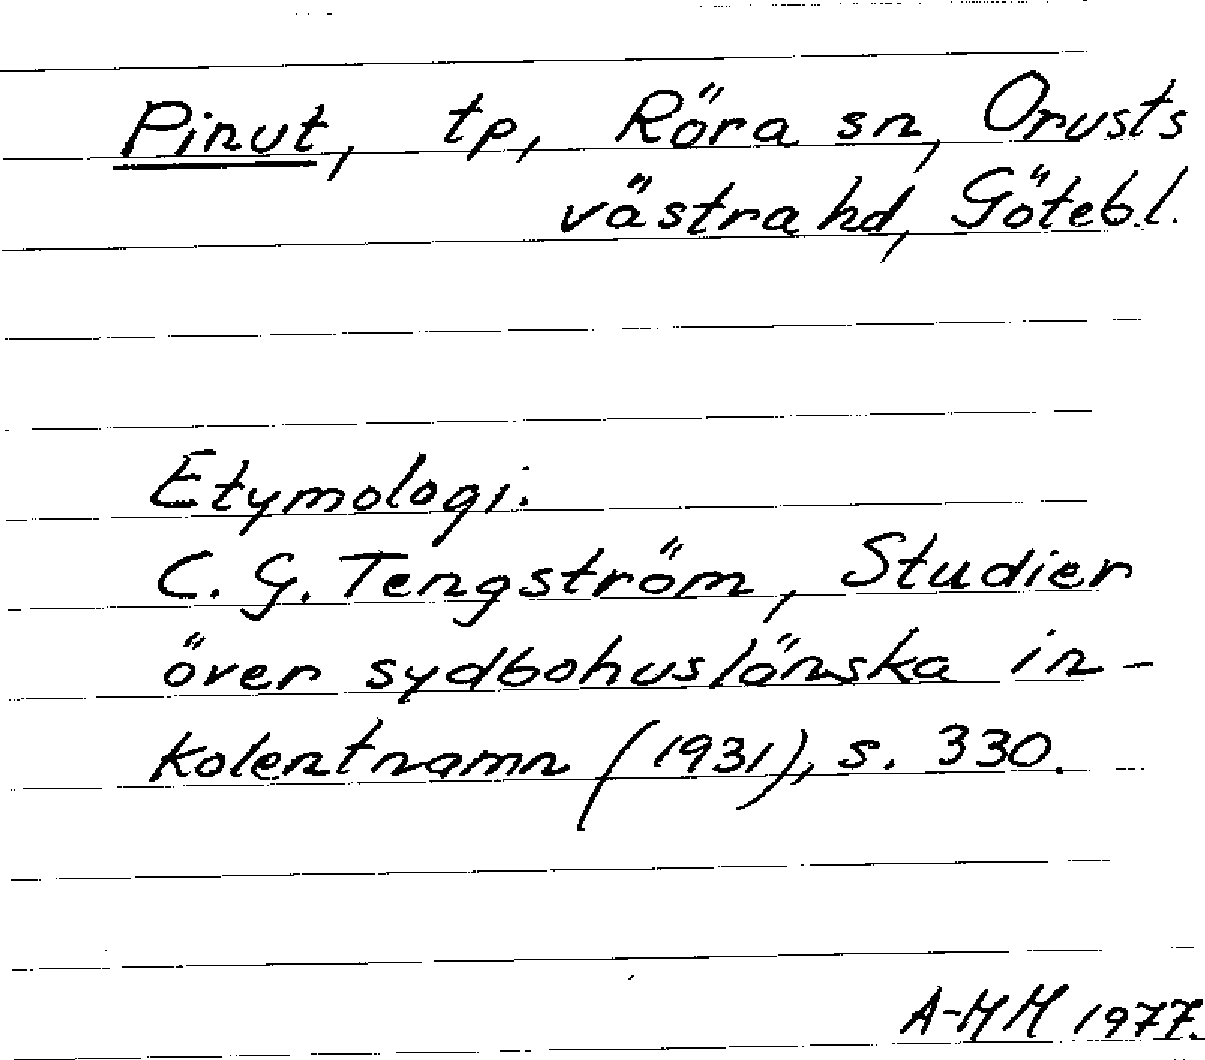 Pinut, tp, Röra sn, Orusts
västra hd, Göteb.l.
Etymologi.
C. G. Tengström, Studier
över sydbohuslänska in-
kolentnamn (1931), s. 330.
A-MM 1977.